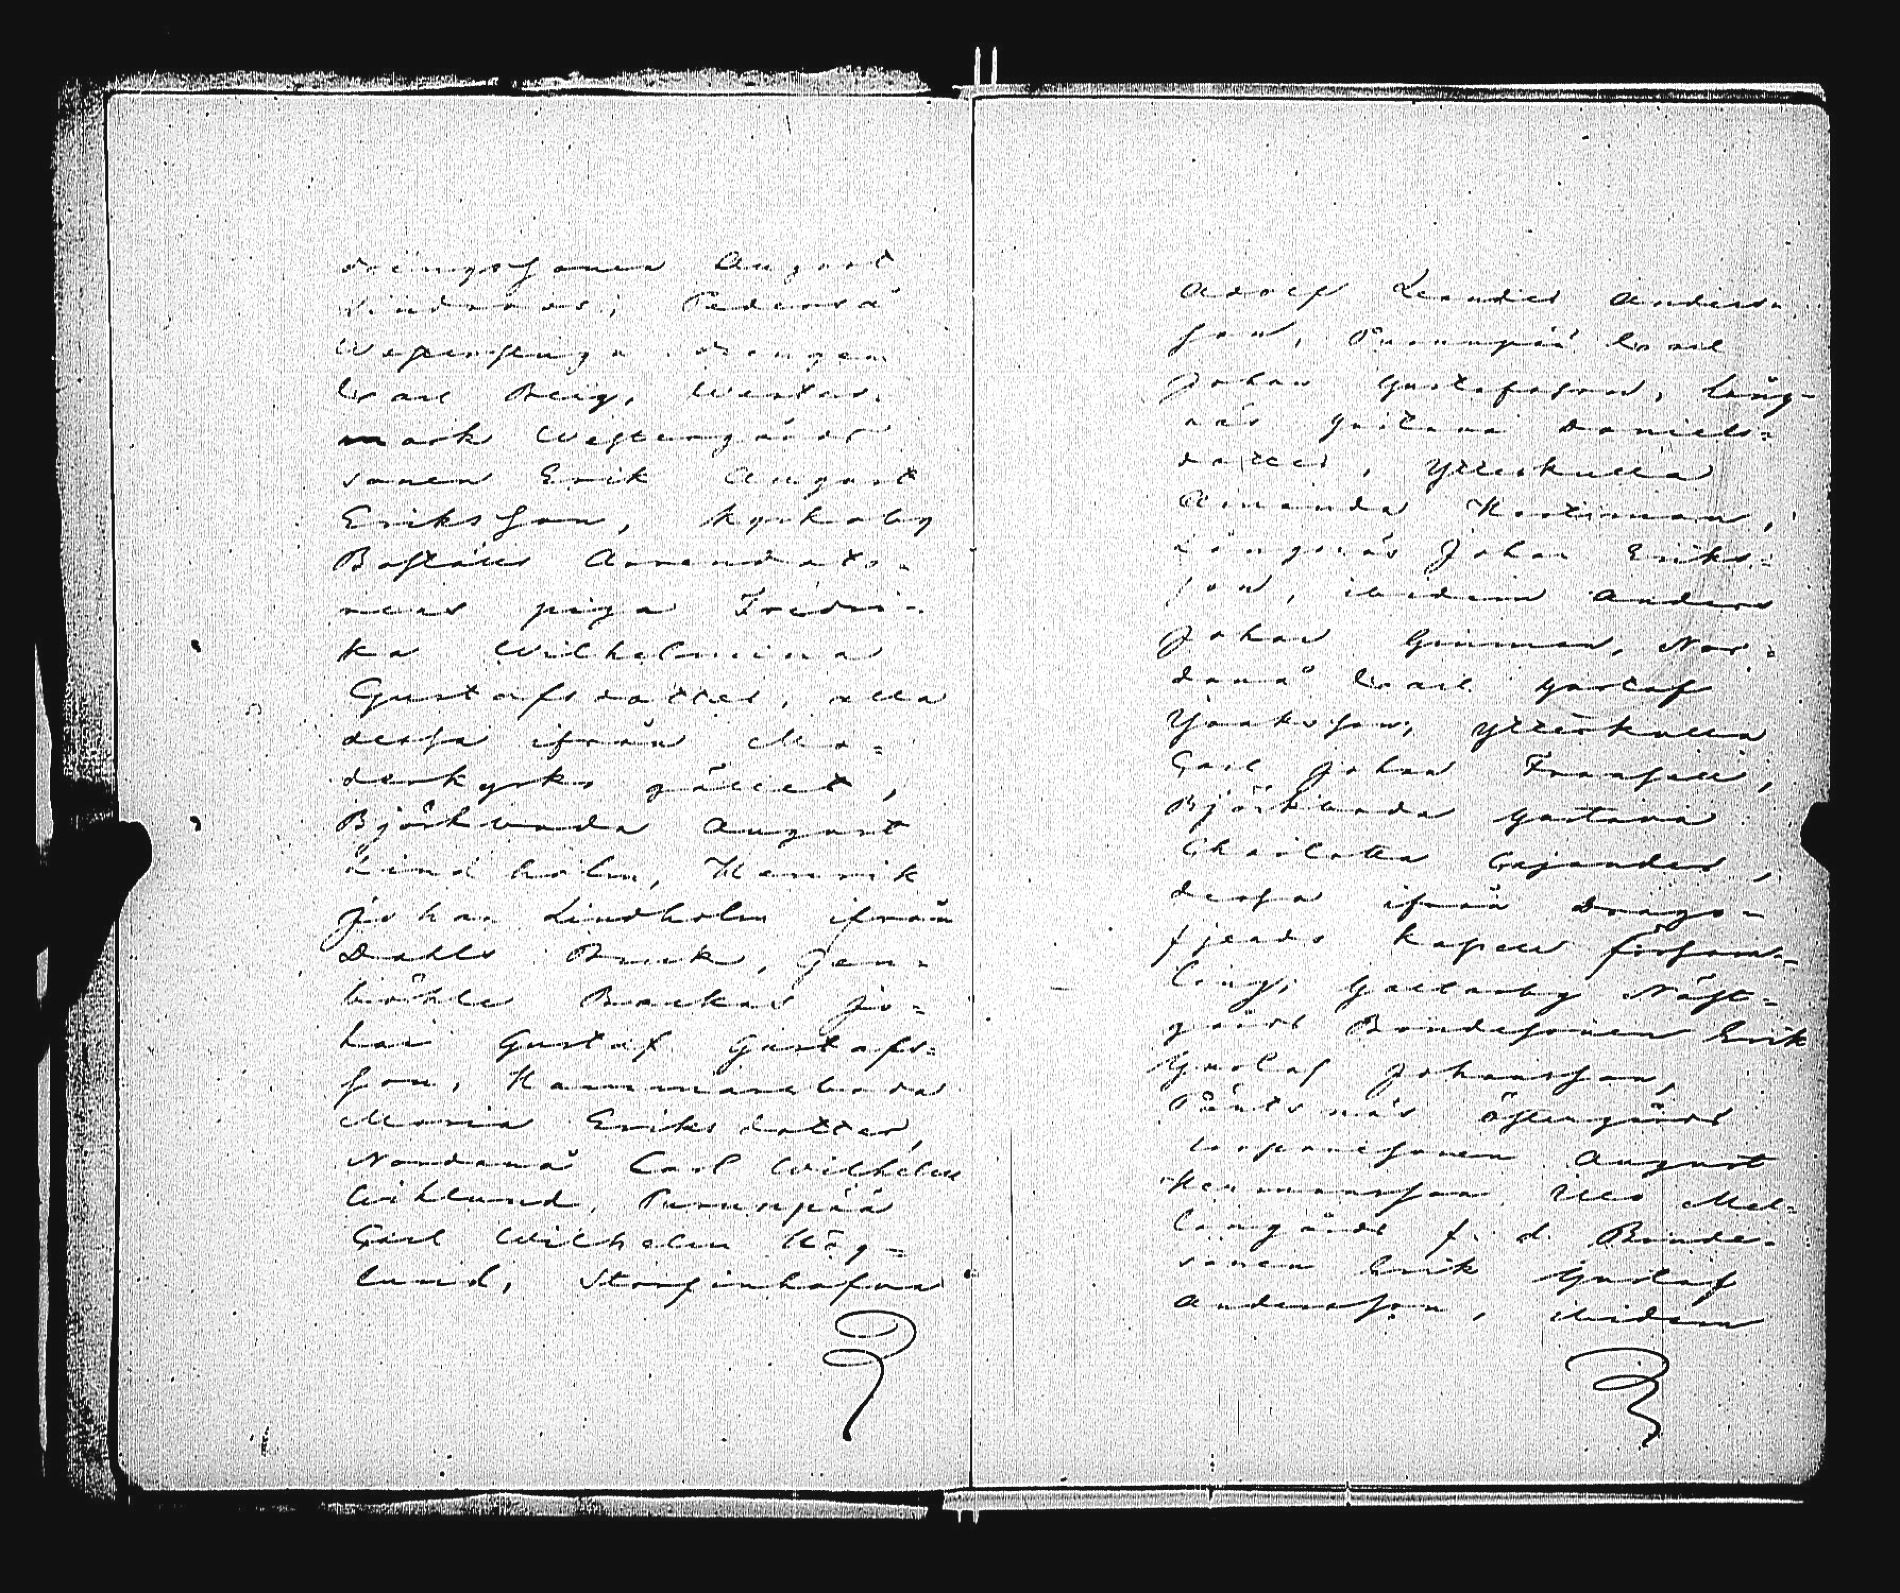 drängssonen August
Lindroos, Pederså
Westergingu drängen
Carl Berg, Wester-
mark Westergårds
sonen Erik August
Eriksson, Kyrkoby
Boställs Arrendato-
rens piga Fredri-
ka Wilhelmina
Gustafsdotter, alla
dessa ifrån Mo-
derkyrko gället,
Björkboda August
Lindholm, Henrik
Johan Lindholm ifrån
Dahls Bruk, Gen-
böhle Backas Jo-
han Gustaf Gustafs-
son, Hammarsboda
Maria Eriksdotter,
Nordanå Carl Wilhelm
Wiklund, Purunpää
Carl Wilhelm Hög-
lund, Storfinhofva
Adolf Leander Anders-
son, Purunpää Carl
Johan Gustafsson, Lång-
näs Gustava Daniels-
dotter, Ytterkulla
Amanda Köstman,
Långnäs Johan Eriks-
son, ibidem Anders
Johan Grönman, Nor-
danå Carl Gustaf
Isaksson, Ytterkulla
Carl Johan Franssell,
Björkboda Gustava
Charlotta Cajander,
dessa ifrån Drags-
fjerds kapell försam-
ling, Galtarby Näst-
gårds Bondesonen Erik
Gustaf Johansson,
Påntsnäs Östergårds
torparesonen August
Hermansson, Illo Mel-
langårds f. d. Bonde-
sonen Erik Gustaf
Andersson, ibidem